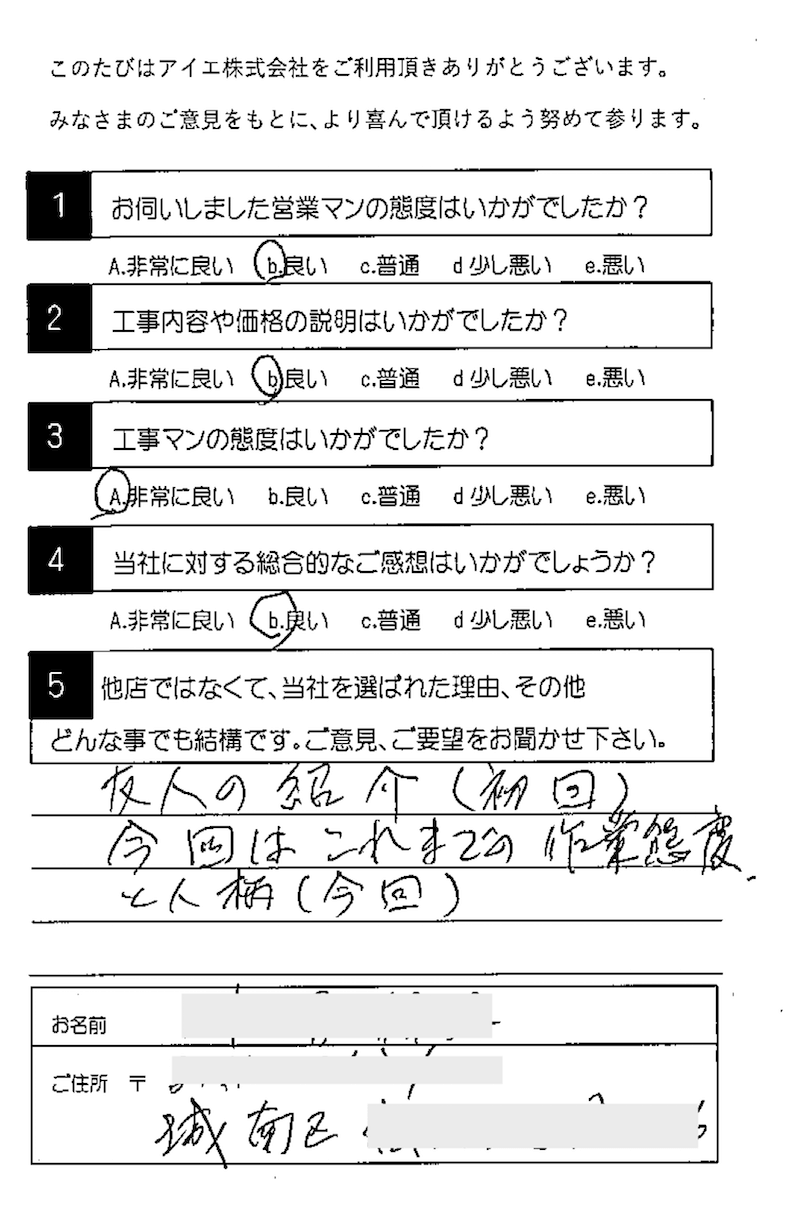 このたびはアイエ株式会社をご利用頂きありがとうございます。
みなさまのご意見をもとに、より喜んで頂けるよう努めて参ります。
1 お伺いしました営業マンの態度はいかがでしたか？
A.非常に良い b.良い c.普通 d 少し悪い e.悪い
2 工事内容や価格の説明はいかがでしたか？
A.非常に良い b.良い c.普通 d 少し悪い e.悪い
3 工事マンの態度はいかがでしたか？
A.非常に良い b.良い c.普通 d 少し悪い e.悪い
4 当社に対する総合的なご感想はいかがでしょうか？
A.非常に良い b.良い c.普通 d 少し悪い e.悪い
5 他店ではなくて、当社を選ばれた理由、その他
どんな事でも結構です。ご意見、ご要望をお聞かせ下さい。
友人の紹介（初回）
今回はこれまでの作業態度
と人柄（今回）
お名前
ご住所 〒
城南区